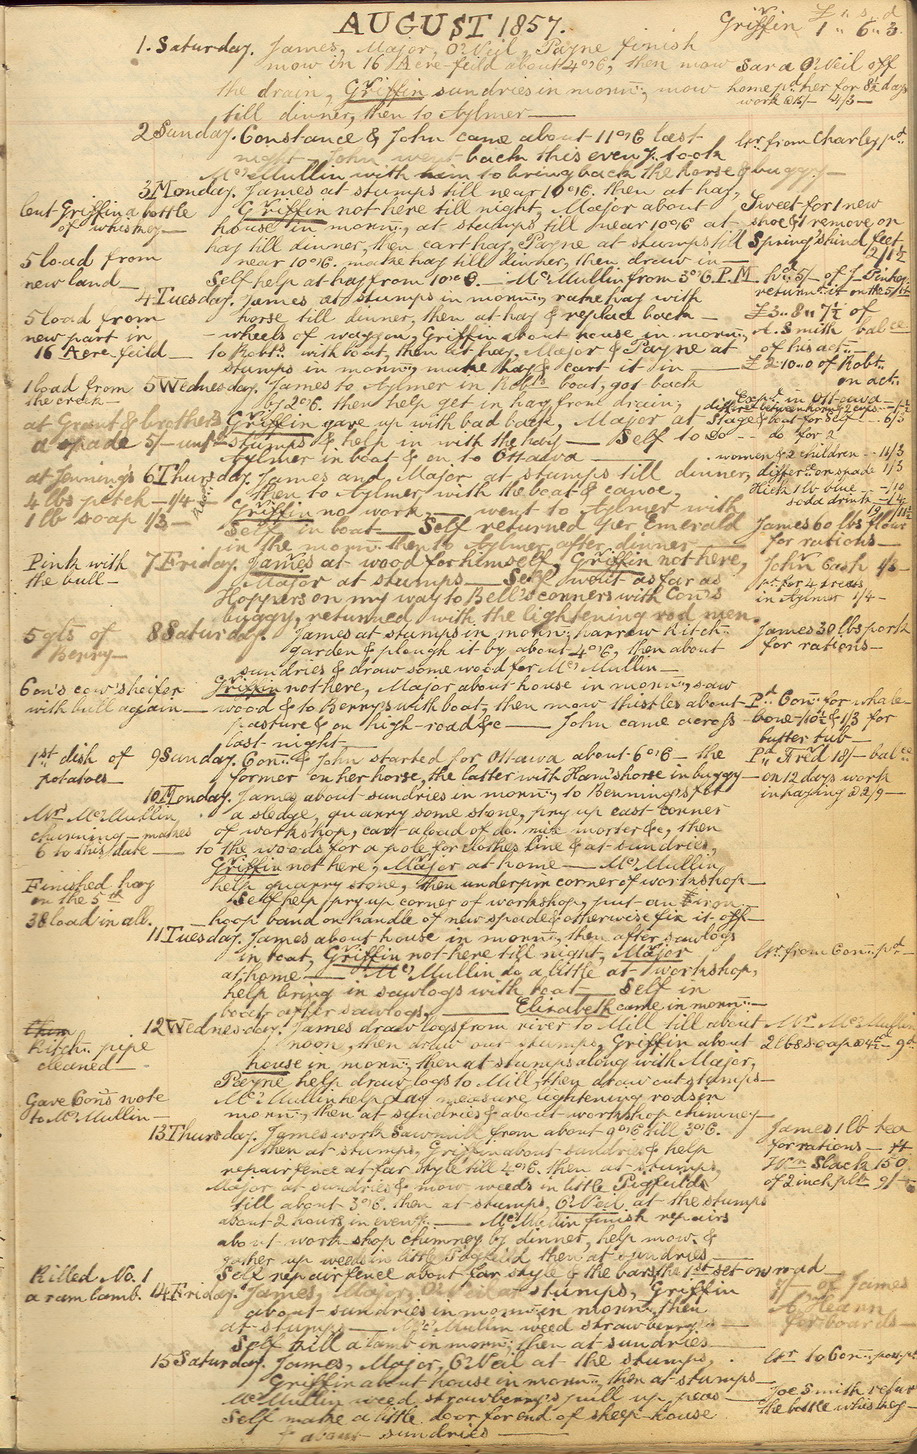 AUGUST 1857.
Griffin £1 " 6 " 3.
1. Saturday. James, Major, O'Neil, Payne finish
mow in 16 Acre-feild about 4 o'C, then mow
the drain, Griffin sundries in morn:, mow
till dinner, then to Aylmer —
Sara O'Neil off
home pd. her for 8½ days
work
2 Sunday. Constance & John came about 11 o'C last
night, John went back this even'g. took
McMullin with him to bring back the horse & buggy —
ltr. from Charley pd.
3 Monday. James at stumps till near 10 o'C. then at hay,
Griffin not here till night, Major about
house in morn:, at stumps till near 10 o'C at
hay till dinner, then cart hay, Payne at stumps till
near 10 o'C. make hay till dinner, then draw in —
Self help at hay from 10 o'C. — McMullin from 3 o'C. P.M
lent Griffin a bottle
of whiskey —
5 load from
new land —
Sweet for 1 new
shoe & 1 remove, on
Spring's hind feet
4 Tuesday. James at stumps in morn:, rake hay with
horse till dinner, then at hay & replace back —
wheels of waggon, Griffin about house in morn:,
to Robts. with boat, then at hay, Major & Payne at
stumps in morn:, make hay & cart it in —
5 load from
new part in
16 Acre feild —
return it on the
£3 " 8 " 7½ of
A. Smith balce
of his act. —
£2 " 10 " 0 of Robt.
on act.
5 Wednesday. James to Aylmer in Robts boat, got back
by 2 o'C. then help get in hay from drain;
Griffin gave up with bad back, Major at
stumps & help in with the hay — Self to
Aylmer in boat & on to Ottawa —
1 load from
the creek —
at Grant & brothers
a spade 5/-
Exps. in Ottawa —
Stage & boat for self
do — do for 2
women & 2 children
6 Thursday. James and Major at stumps till dinner,
then to Aylmer, with the boat & canoe,
Griffin no work — went to Aylmer with
Self in boat — Self returned per Emerald
in the morn: then to Aylmer after dinner —
at Jenning's
4 lbs pitch — 1/4 —
1 lb soap 1/3 —
differ: on spade 1/3
1 lb blue
soda drink
James 60 lbs flour
for rations —
7 Friday. James at wood for himself, Griffin not here,
Major at stumps — Self went as far as
Hoppers on my way to Bell's corners with Con's
buggy, returned with the lightening rod men.
Pink with
the bull —
John Cash
in Aylmer 1/4 —
8 Saturday. James at stumps in morn:, harrow Kitchn.
garden & plough it by about 4 o'C, then about
sundries & draw some wood for McMullin —
Griffin not here, Major about house in morn:, saw
wood & to Berry's with boat, then mow thistles about
pasture & on high-road &c — John came across
last night —
5 gls of
Berry —
Con's cow's heifer
with bull again —
James 30 lbs pork
for rations —
Pd. Con: for whale-
bone /10½ & 1/3 for
butter tub —
9 Sunday. Con: & John started for Ottawa about 6 o'C — the
former on her horse, the latter with Ham's horse in buggy —
1st. dish of
potatoes —
Pd. Fred 18/- balce
on 12 days work
in haying @ 2/9 —
10 Monday. James about sundries in morn:, to Benning's for
a sledge, quarry some stone, pry up east corner
of workshop, cart a load of do. mix morter &c, then
to the woods for a pole for clothes line & at sundries,
Griffin not here, Major at home — McMullin
help quarry stone, then underpin corner of workshop —
Self help pry up corner of workshop, put an iron
hoop band on handle of new spade & otherwise fix it off —
Mrs. McMullin
churning — makes
6 to this date —
Finished hay
on the 5th
38 load in all.
11 Tuesday. James about house in morn:, then after sawlogs
in boat, Griffin not here till night, Major
at home — McMullin do a little at workshop,
help bring in sawlogs with boat — Self in
boat after sawlogs, — Elizabeth came in morn: —
ltr. from Con: pd —
12 Wednesday. James draw logs from river to Mill till about
noon, then draw out stumps, Griffin about
house in morn:, then at stumps along with Major,
Payne help draw logs to Mill, then draw out stumps —
McMullin help Lay measure lightening rods in
morn:, then at sundries & about workshop chimney —
Kitchn. pipe
cleaned —
Gave Con's note
to McMullin —
Mrs. McMullin
2 lbs soap
13 Thursday. James work Sawmill from about 9 o'C till 3 o'C.
then at stumps, Griffin about sundries & help
repair fence at far style till 4 o'C. then at stumps,
Major at sundries & mow weeds in little Pigfeild
till about 3 o'C. then at stumps, O'Neil at the stumps
about 2 hours in even'g. — McMullin finish repairs
about workshop chimney by dinner, help mow &
gather up weeds in little Pigfeild then at sundries —
Self repair fence about far style & the bars, the 1st set on road —
James 1 lb tea
for rations —
Wm. Slack 150
of 2 inch plk 9/-
14 Friday. James, Major, O'Neil at stumps, Griffin
about sundries in morn: in morn:, then
at stumps — McMullin weed strawberry's —
Self kill a lamb in morn:, then at sundries —
Killed No. 1
a ram lamb.
of James
A'Hearn
for boards —
15 Saturday. James, Major, O'Neil at the stumps,
Griffin about house in morn:, then at stumps —
McMullin weed strawberry's pull up peas —
Self make a little door for end of sheep-house
& about sundries —
ltr. to Con:
Joe Smith
the bottle whiskey —